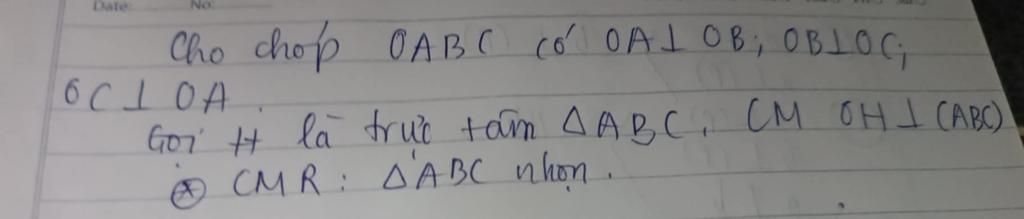 Date: No:
Cho chóp OABC có OA⊥OB; OB⊥OC;
OC⊥OA.
Gọi H là trực tâm ΔABC. CM OH⊥(ABC)
⊛ CMR: ΔABC nhọn.